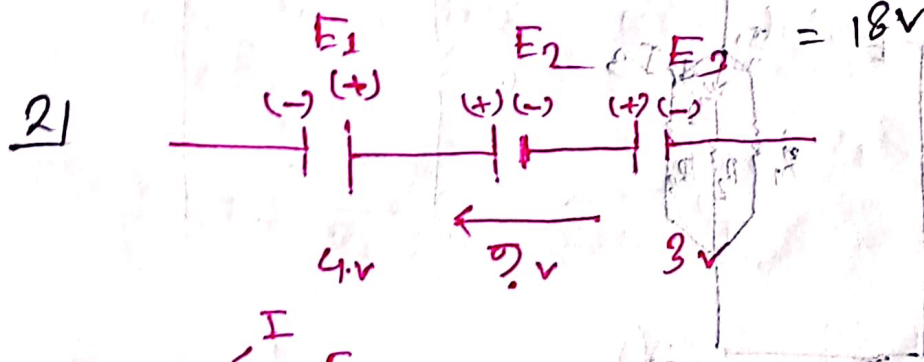 = 18V
E1 E2 E3
(-) (+) (+) (-) (+) (-)
2]
4.v ? v 3 v
I